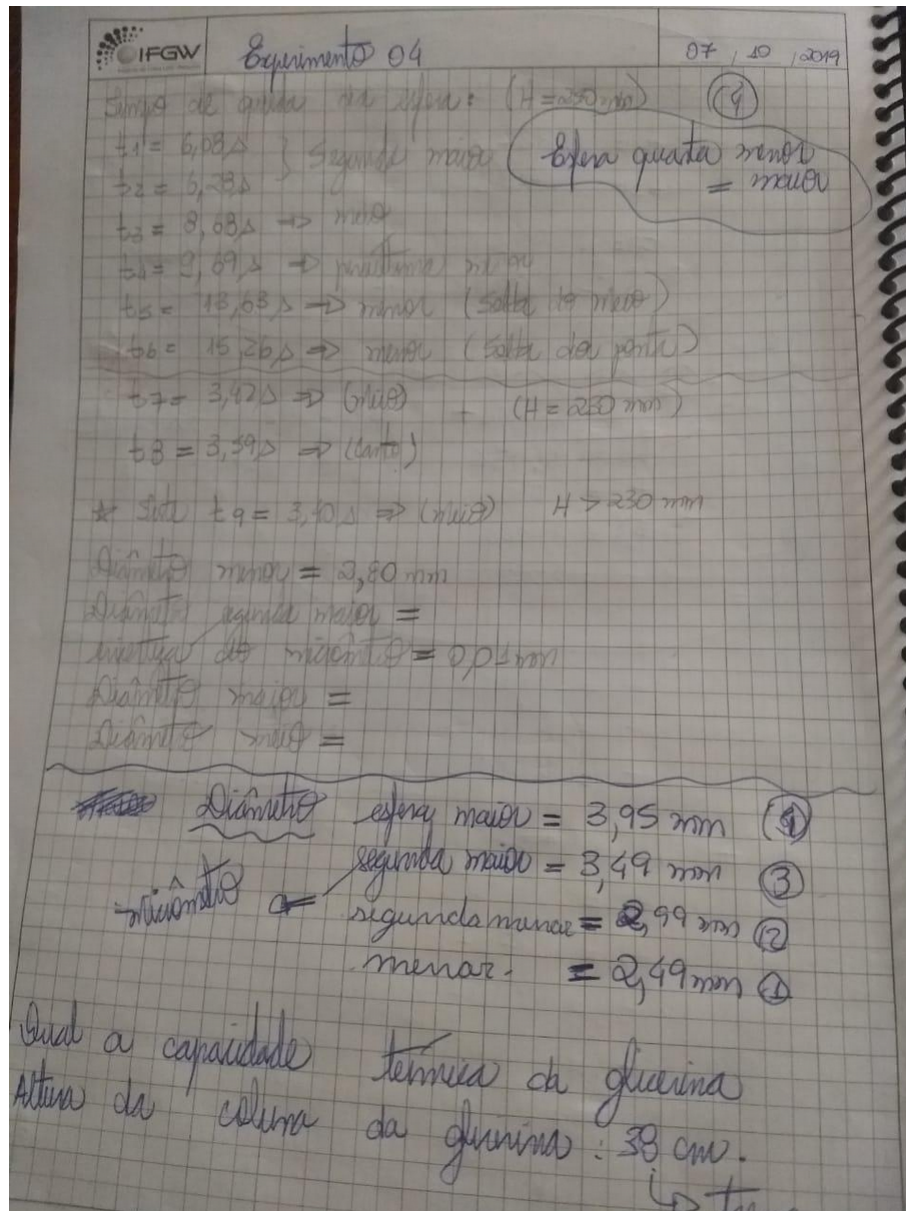 IFGW Experimento 04 07 / 10 / 2019
Tempo de queda da esfera: (H = 250 mm) (4)
t1 = 6,08 s } Segunda maior (Esfera quarta menor
t2 = 6,28 s = maior
t3 = 8,68 s => meio
t4 = 9,69 s =>
t5 = 13,63 s => menor (Solta do meio)
t6 = 15,26 s => menor (Solta da ponta)
t7 = 3,42 s => (meio) - (H = 230 mm)
t8 = 3,59 s => (canto)
* t9 = 3,40 s => (meio) H > 230 mm
Diâmetro menor = 2,80 mm
Diâmetro segunda maior =
incerteza do micrômetro = 0,01 mm
Diâmetro maior =
Diâmetro meio =
Diâmetro esfera maior = 3,95 mm
segunda maior = 3,49 mm (3)
micrômetro segunda menor = 2,99 mm (2)
menor. = 2,49 mm (1)
Qual a capacidade térmica da glicerina
Altura da coluna da glicerina : 38 cm.